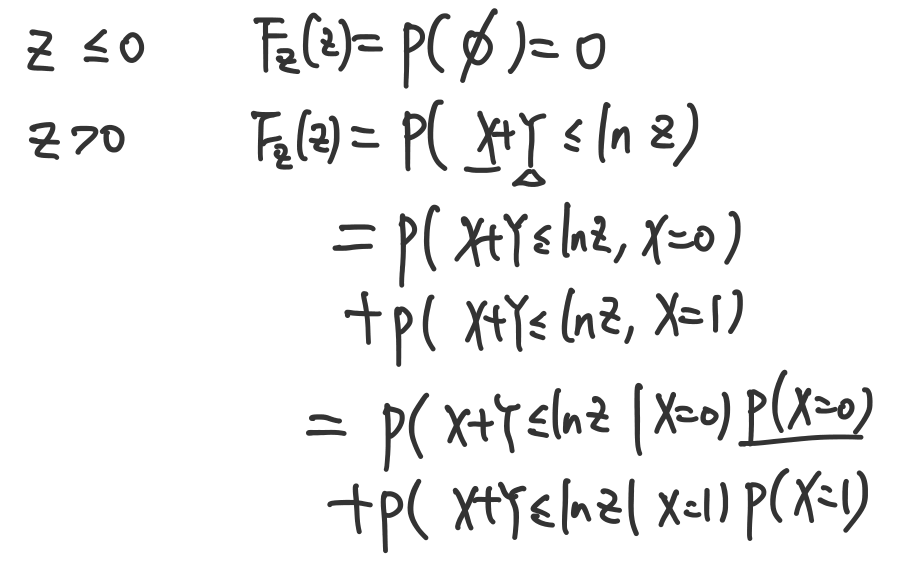 z ≤ 0 F_z(z) = P(∅) = 0
z > 0 F_z(z) = P(X+Y ≤ ln z)
= P(X+Y ≤ ln z, X=0)
+ P(X+Y ≤ ln z, X=1)
= P(X+Y ≤ ln z | X=0) P(X=0)
+ P(X+Y ≤ ln z | X=1) P(X=1)